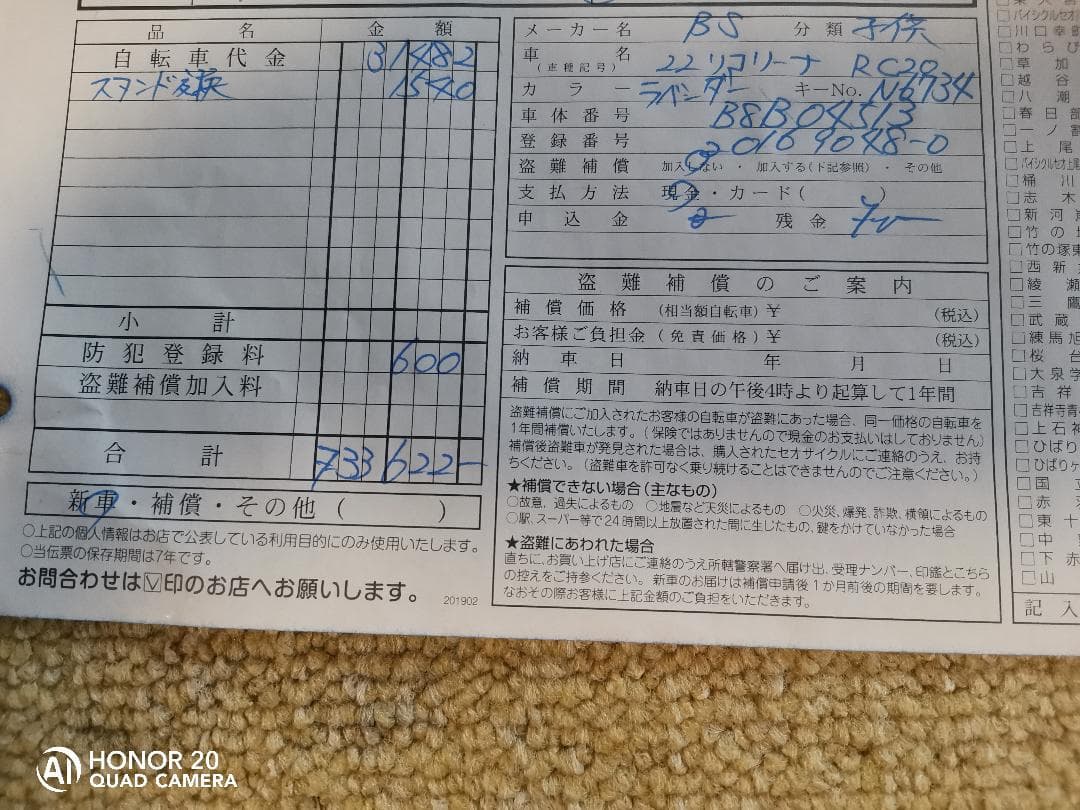 品名 金額
自転車代金 31482
スタンド交換 1540
小計
防犯登録料 600
盗難補償加入料
合計 ¥33622-
新車・補償・その他( )
○上記の個人情報はお店で公表している利用目的にのみ使用いたします。
○当伝票の保存期間は7年です。
お問合わせは☑印のお店へお願いします。
201902
メーカー名 BS 分類 子供
車名(車種記号) 22リコリーナ RC20
カラー ラベンダー キーNo. N6734
車体番号 B8B04513
登録番号 0169048-0
盗難補償 加入しない・加入する(下記参照)・その他
支払方法 現金・カード( )
申込金 残金
盗難補償のご案内
補償価格(相当額自転車)¥ (税込)
お客様ご負担金(免責価格)¥ (税込)
納車日 年 月 日
補償期間 納車日の午後4時より起算して1年間
盗難補償にご加入されたお客様の自転車が盗難にあった場合、同一価格の自転車を
1年間補償いたします。(保険ではありませんので現金のお支払いはしておりません)
補償後盗難車が発見された場合は、購入されたセオサイクルにご連絡のうえ、お持
ちください。(盗難車を許可なく乗り続けることはできませんのでご注意ください。)
★補償できない場合(主なもの)
○故意、過失によるもの ○地震など天災によるもの ○火災、爆発、詐欺、横領によるもの
○駅、スーパー等で24時間以上放置された間に生じたもの、鍵をかけていなかった場合
★盗難にあわれた場合
直ちに、お買い上げ店にご連絡のうえ所轄警察署へ届け出、受理ナンバー、印鑑とこちら
の控えをご持参ください。新車のお届けは補償申請後1か月前後の期間を要します。
なおその際お客様に上記金額のご負担をいただきます。
□バイシクルセオ
□川口幸
□わらび
□草加
□越谷
□八潮
□春日部
□一ノ割
□上尾
□バイシクルセオ上尾
□桶川
□志木
□新河岸
□竹の塚
□竹の塚東
□西新
□綾瀬
□三鷹
□武蔵
□練馬旭
□桜台
□大泉学
□吉祥
□吉祥寺
□上石神
□ひばり
□ひばりヶ
□国立
□赤
□東十
□中
□下赤
□山
記入
HONOR 20
QUAD CAMERA